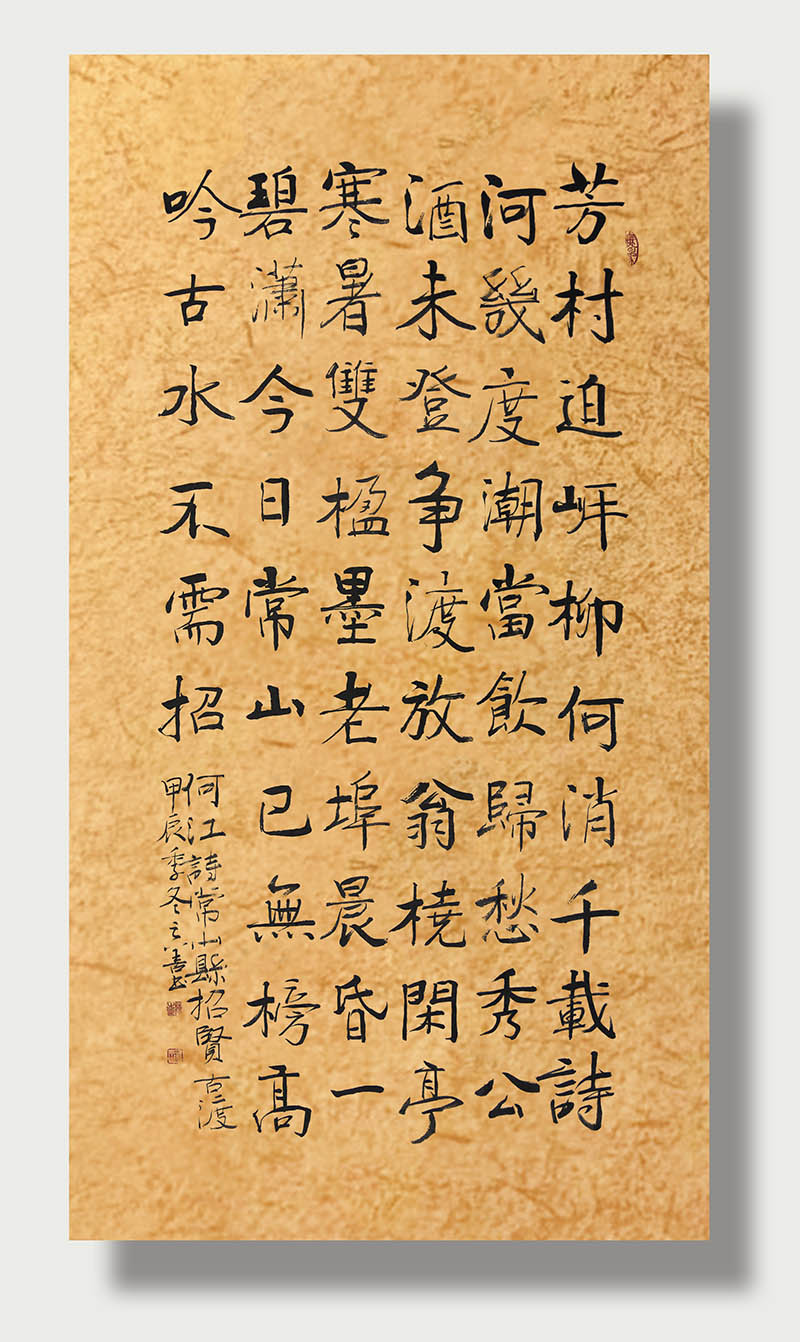 芳村迫岸柳何消千載詩
河幾度潮當飲歸愁秀公
酒未登争渡放翁橈閑亭
寒暑雙楹墨老埠晨昏一
碧瀟今日常山已無榜髙
吟古水不需招
何江詩常山縣招賢古渡
甲辰季冬